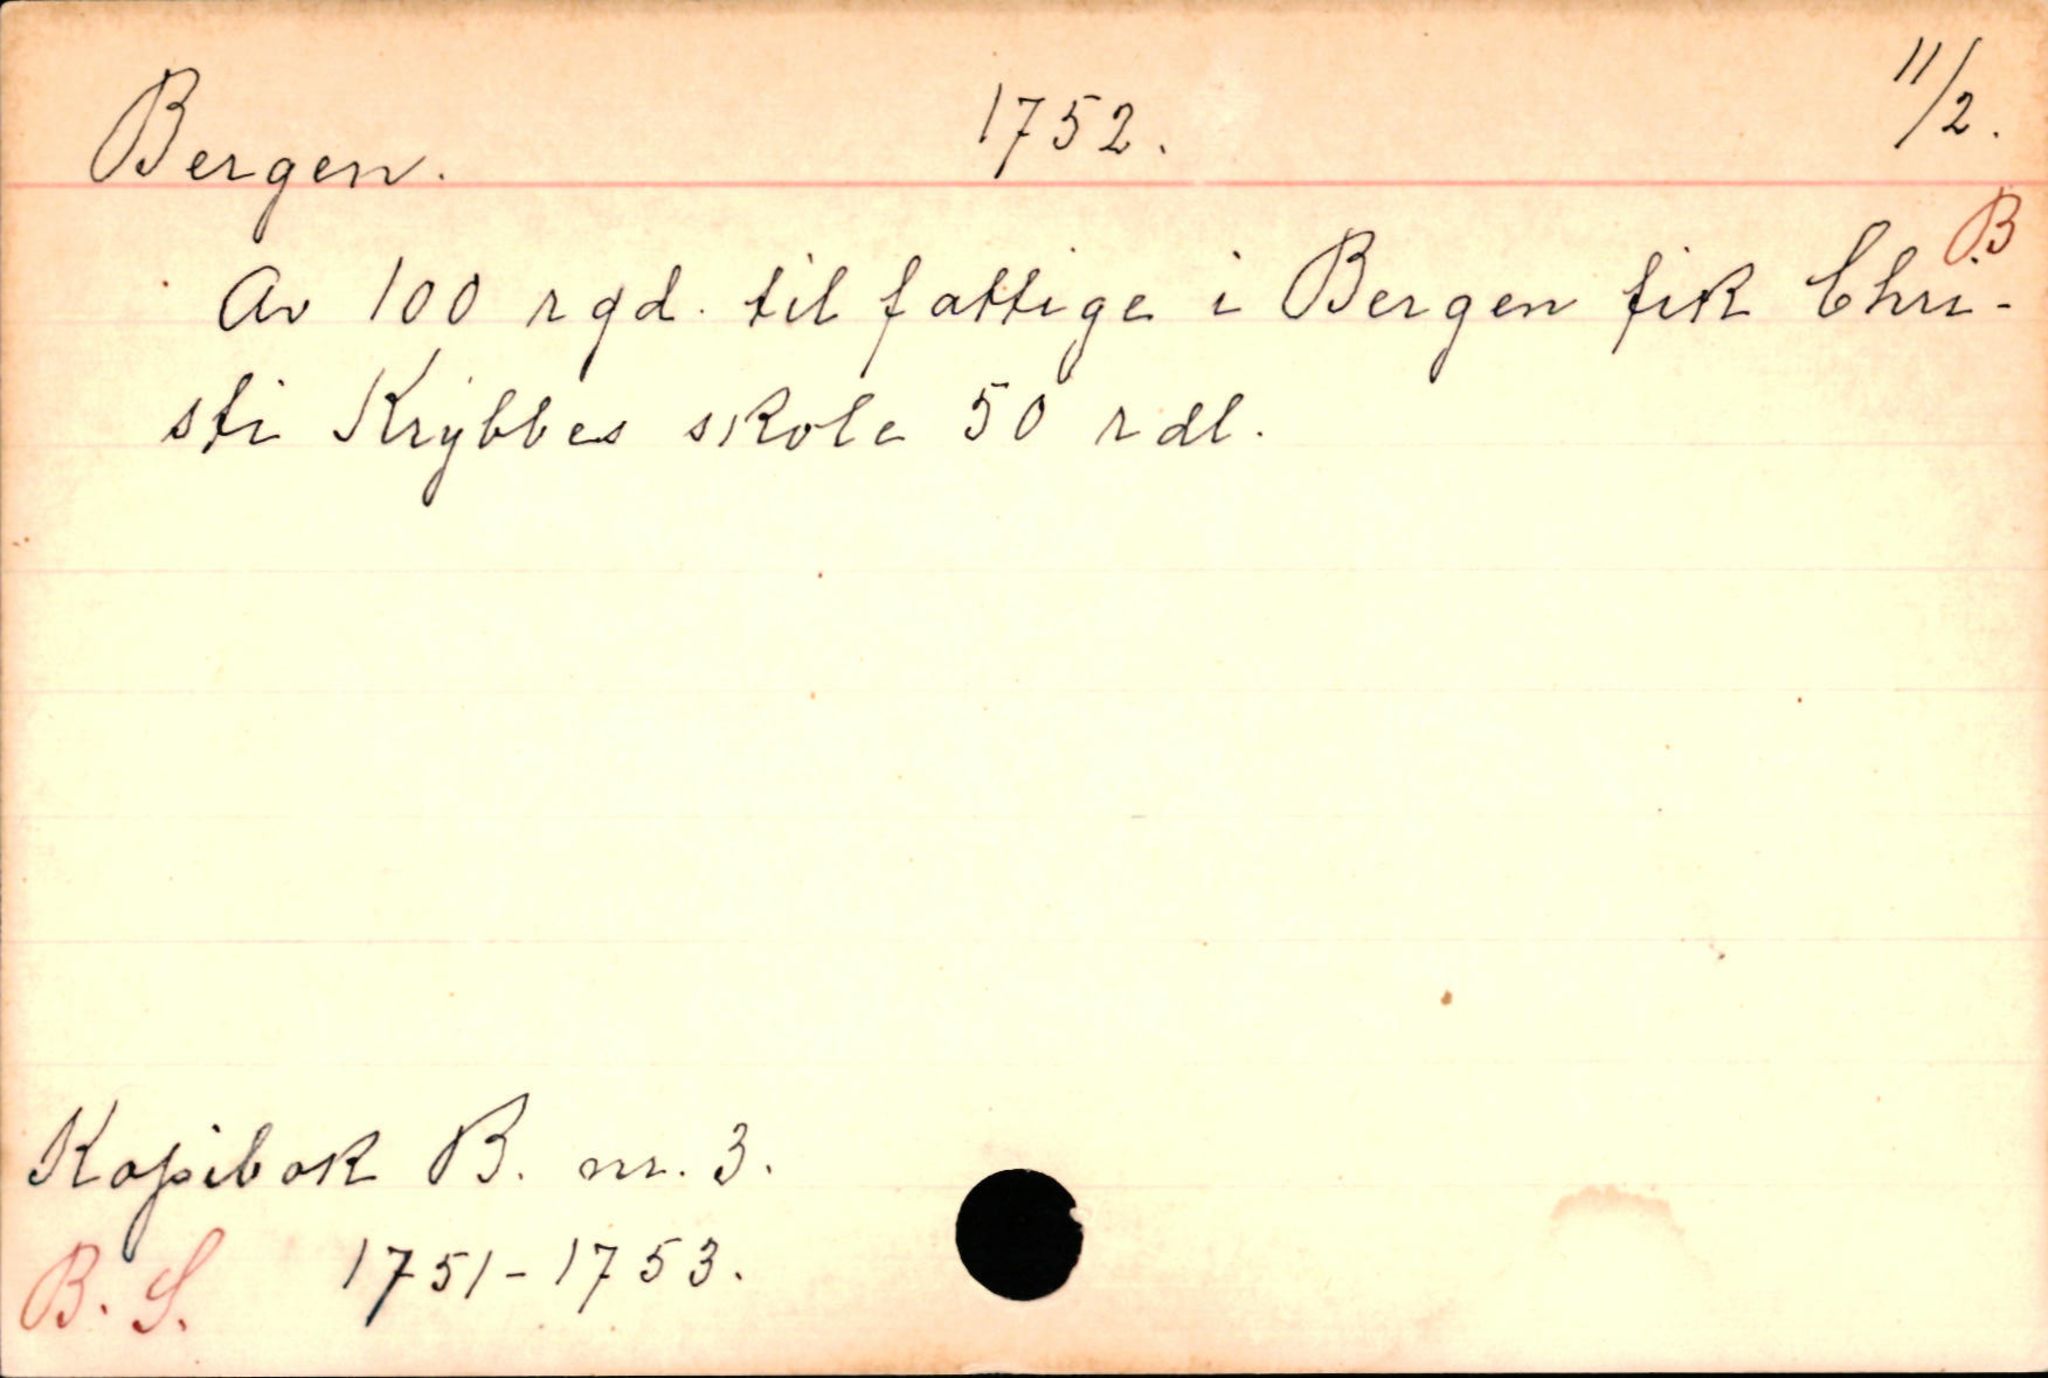 Bergen. 1752. 11/2.
B
Av 100 rgd. til fattige i Bergen fik Chri-
sti Krybbes skole 50 rdl.
Kopibok B. nr. 3.
B. S. 1751-1753.